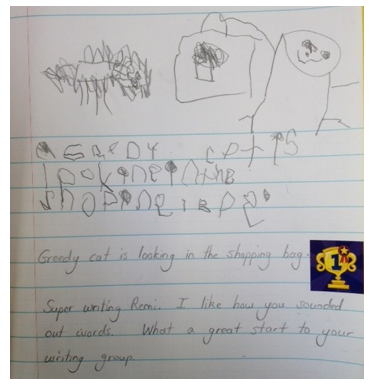 GEREDY CAT IS
looKiNG iNtHE
SHOPPiNG BAG
Greedy cat is looking in the shopping bag.
Super writing Remi. I like how you sounded
out words. What a great start to your
writing group.